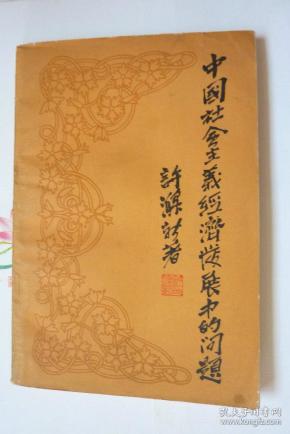 中國社会主義經濟發展中的问題
許滌新著
孔夫子旧书网